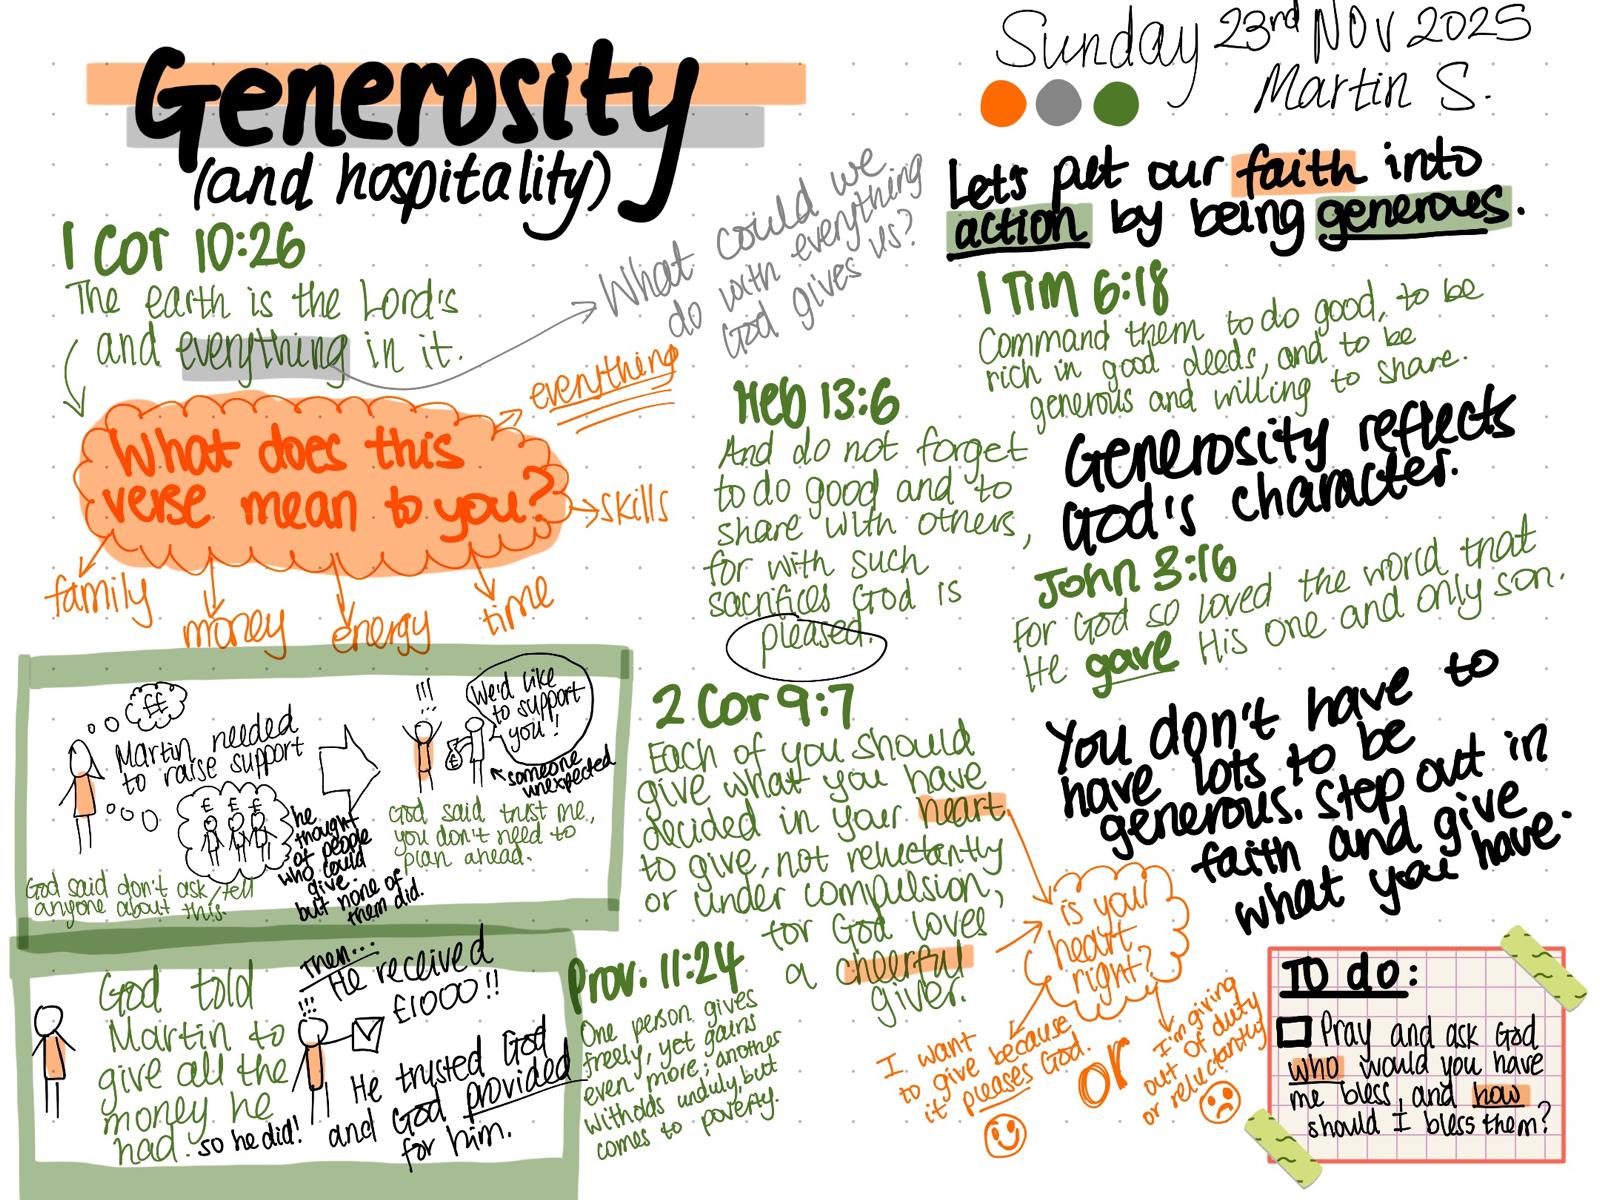 Generosity
(and hospitality)
Sunday 23rd Nov 2025
Martin S.
1 Cor 10:26
The earth is the Lord's
and everything in it.
What could we
do with everything
God gives us?
What does this
verse mean to you?
everything
skills
time
energy
money
family
Let's put our faith into
action by being generous.
1 Tim 6:18
Command them to do good, to be
rich in good deeds, and to be
generous and willing to share.
Generosity reflects
God's character.
John 3:16
For God so loved the world that
He gave His one and only son.
You don't have to
have lots to be
generous. Step out in
faith and give
what you have.
Heb 13:6
And do not forget
to do good and to
share with others,
for with such
sacrifices God is
pleased.
2 Cor 9:7
Each of you should
give what you have
decided in your heart
to give, not reluctantly
or under compulsion,
for God loves
a cheerful
giver.
is your
heart
right?
I want
to give because
it pleases God.
or
I'm giving
out of duty
or reluctantly
Prov. 11:24
One person gives
freely, yet gains
even more; another
witholds unduly, but
comes to poverty.
££
Martin needed
to raise support
£ £ £
he
thought
of people
who could
give
but none of
them did.
God said don't ask/tell
anyone about this.
!!!
We'd like
to support
you!
someone
unexpected
God said trust me,
you don't need to
plan ahead.
God told
Martin to
give all the
money he
had.
so he did!
Then...
!!!
He received
£1000!!
He trusted God
and God provided
for him.
TO do:
Pray and ask God
who would you have
me bless, and how
should I bless them?